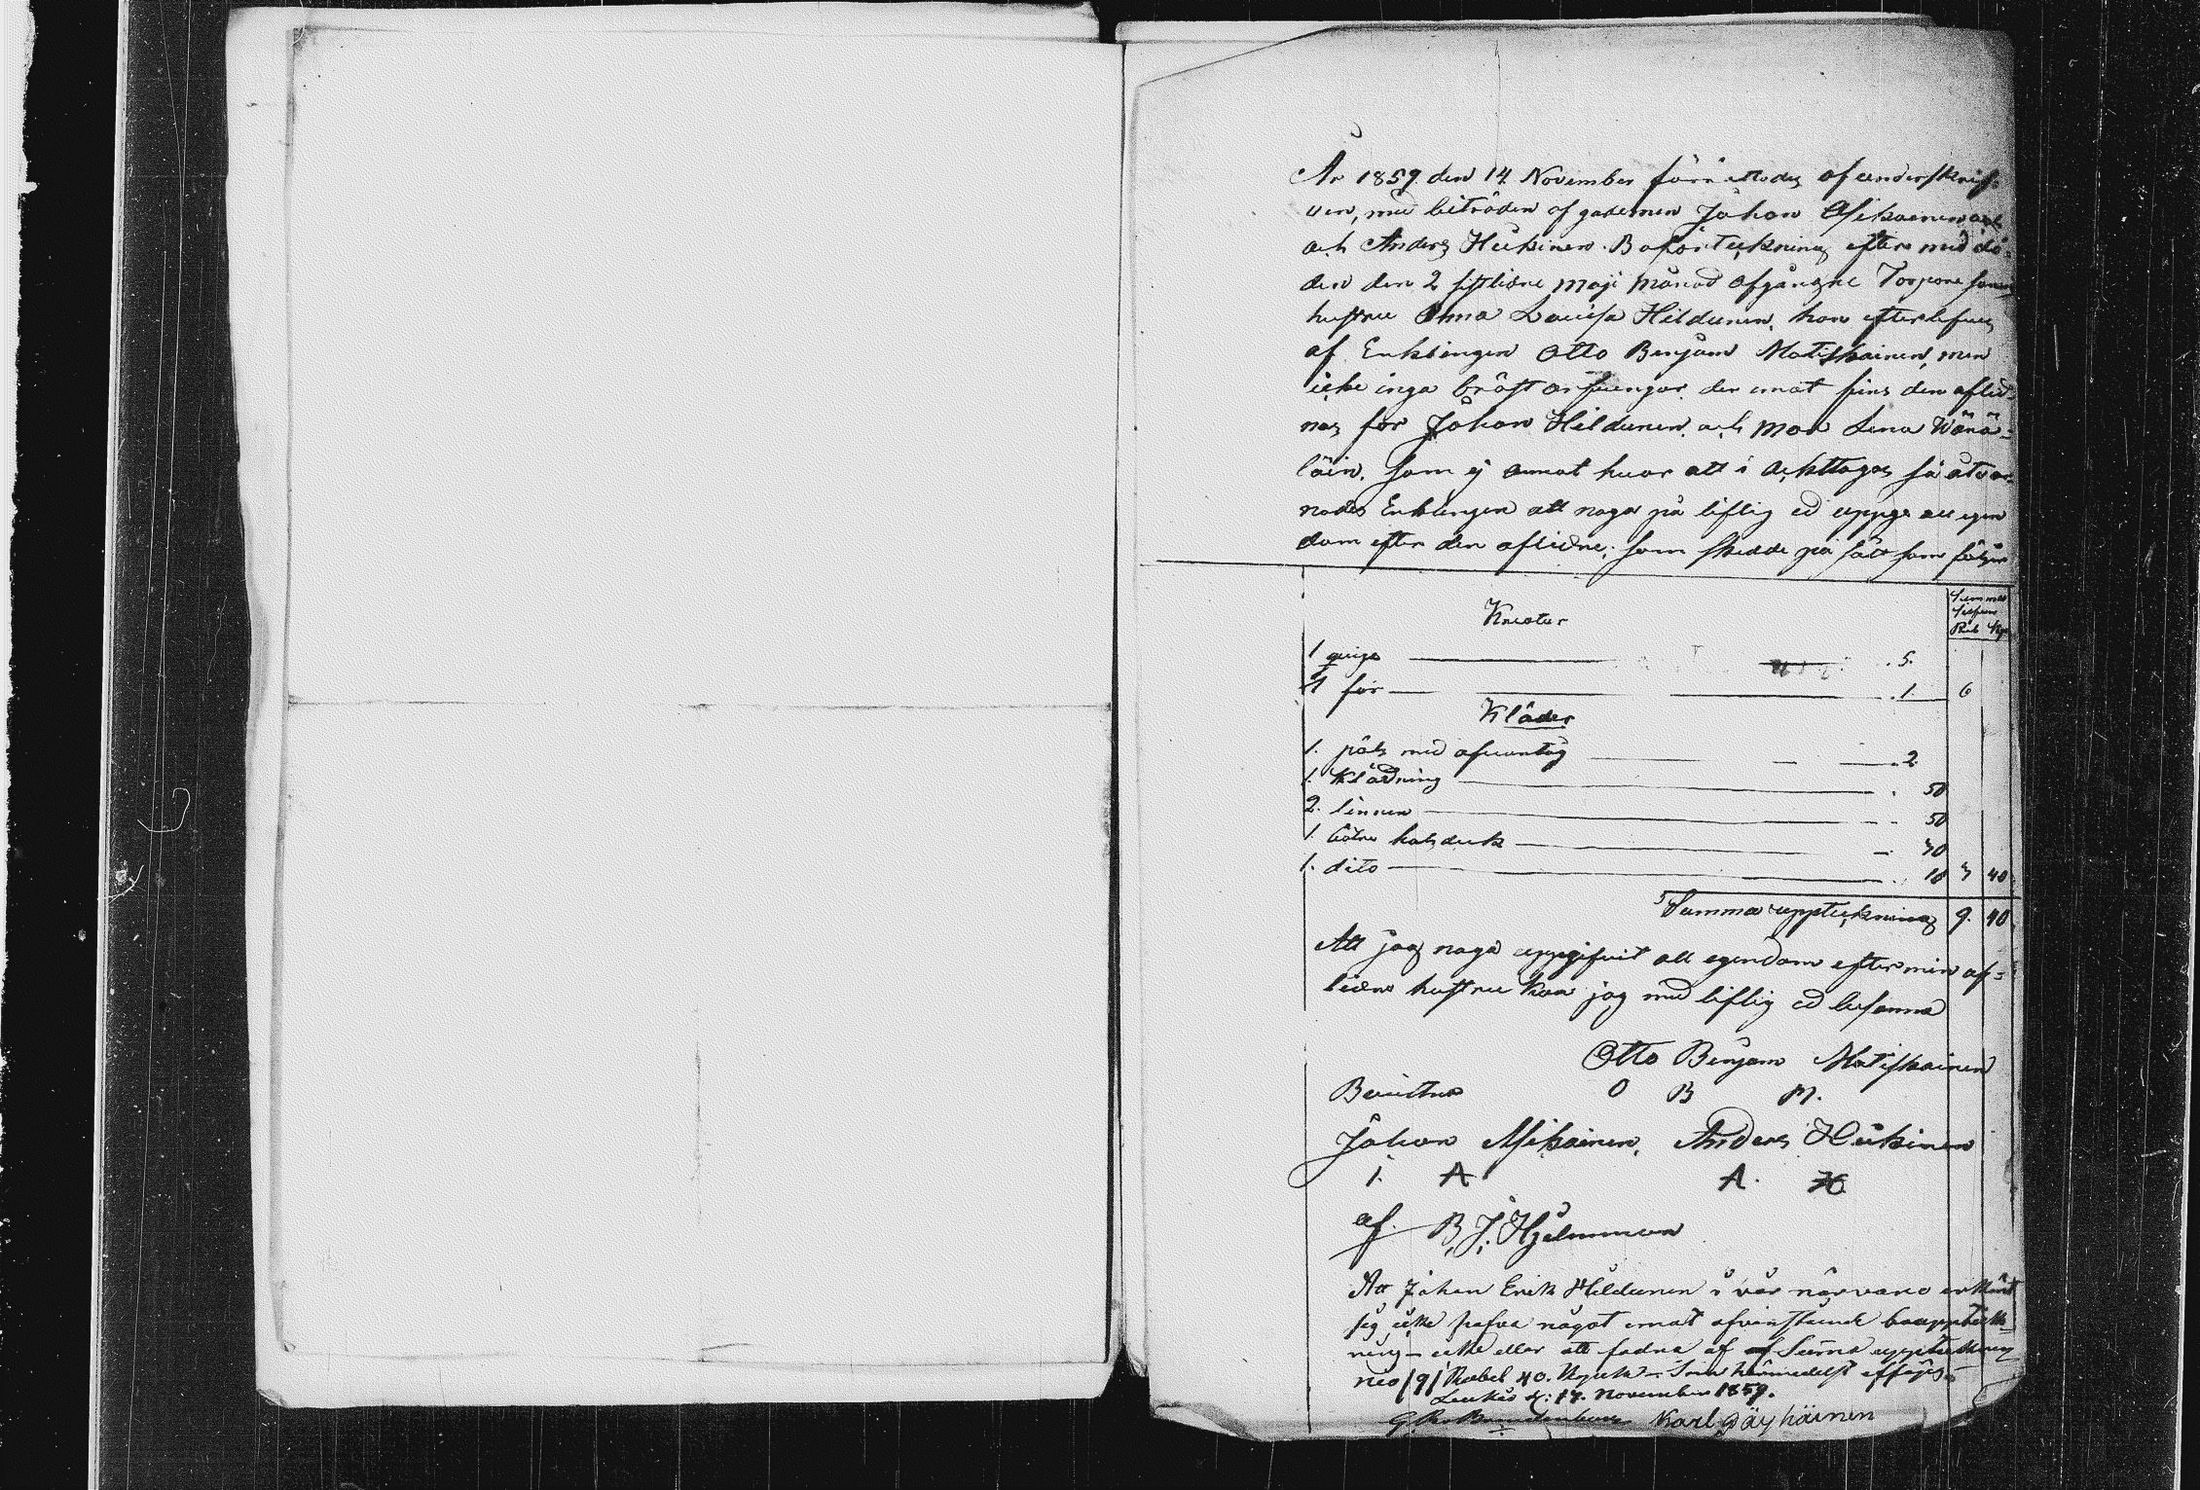 År 1859 den 14 November förrättades af underskrif-
ven, med biträden af godemen Johan Asikainen
och Anders Heikinen Boförteckning efter med dö-
den den 2 sistlidne maji månad afgångne Torpare
hustru Anna Lovisa Hildunen, hon efterlefves
af Enklingen Otto Benjam Matiskainen, men
icke inga bröst arfvingar, der emot fins den aflid-
nas far Johan Hildunen och Mor Lena Wänä-
läin, som ej annat hvar att i acktagas så åtvar-
nades Enklingen att noga på liflig ed uppge all egen
dom efter den aflidne, som skedde på sätt som följer
Summa
Silfver
Rub Kop
Kreatur
1 qviga 5.
1 får 1 6
Kläder
1. päls med afvantyg 2
1. Klädning 50
2. linnen 50
1. halsduk 30
1. dito 10 3 40
Summa uppteckning 9. 40
Att jag noga uppgifvit all egendom efter min af-
lidne hustru kan jag med liflig ed
Otto Benjam Matiskainen
O B M.
Johan Asikainen, Anders Heikinen
J. A A. H
af B. J. Hjelmman
Att Johan Erik Hildunen i vår närvaro erkänt
sig icke hafva något emot ofvanstående bouppteck-
ning icke eller att fodra af Suma uppteckning
/9/ Rubel 40. Kopek
d: 17. November 1859.
Karl Päyhäinen